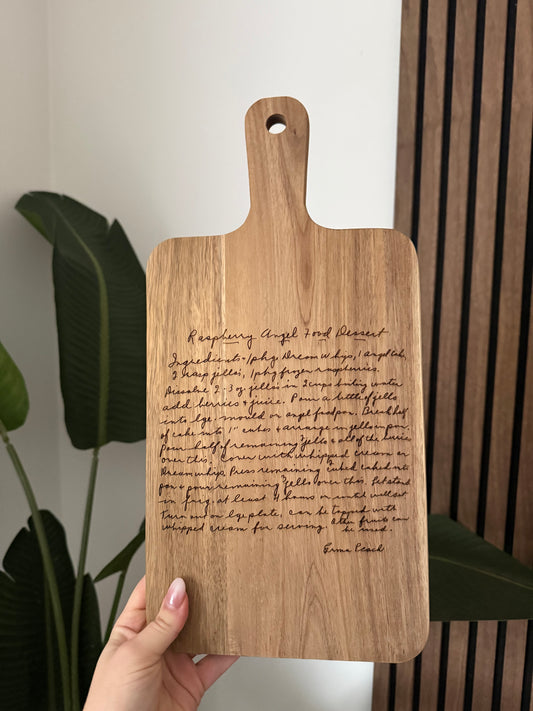 Raspberry Angel Food Dessert
Ingredients - 1 pkg Dream Whip, 1 angel cake,
2 Rasp jellos, 1 pkg frozen raspberries.
Dissolve 2 - 3 oz jellos in 2 cups boiling water
add berries & juice. Pour a little of jello
into lge mould or angel food pan. Break half
of cake into 1" cubes & arrange in jello in pan.
Pour half of remaining Jello & all of the berries
over this. Cover with whipped cream or
Dream whip. Press remaining cubed cake into
pan & pour remaining Jello over this. Let stand
in frig. at least 4 hours or until well set.
Turn out on lge plate, can be topped with
whipped cream for serving. Other fruits can
be used.
Erma Leach